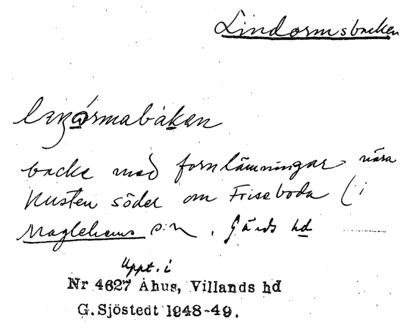 Lindormsbacken
linórmabáken
backe med fornlämningar nära
kusten söder om Friseboda (i
Maglehems s:n, Gärds hd
Uppt. i
Nr 4627 Åhus, Villands hd
G.Sjöstedt 1948-49.